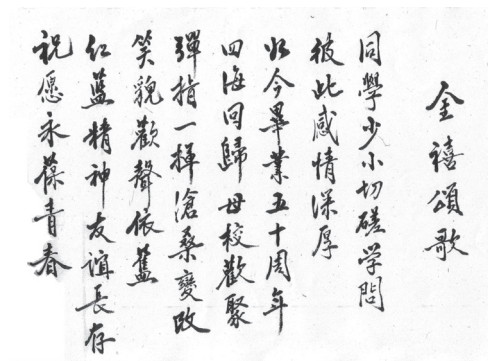 金禧頌歌
同學少小切磋学問
彼此感情深厚
如今畢業五十周年
四海回歸母校歡聚
彈指一揮滄桑變改
笑貌歡聲依舊
红藍精神友誼長存
祝愿永葆青春